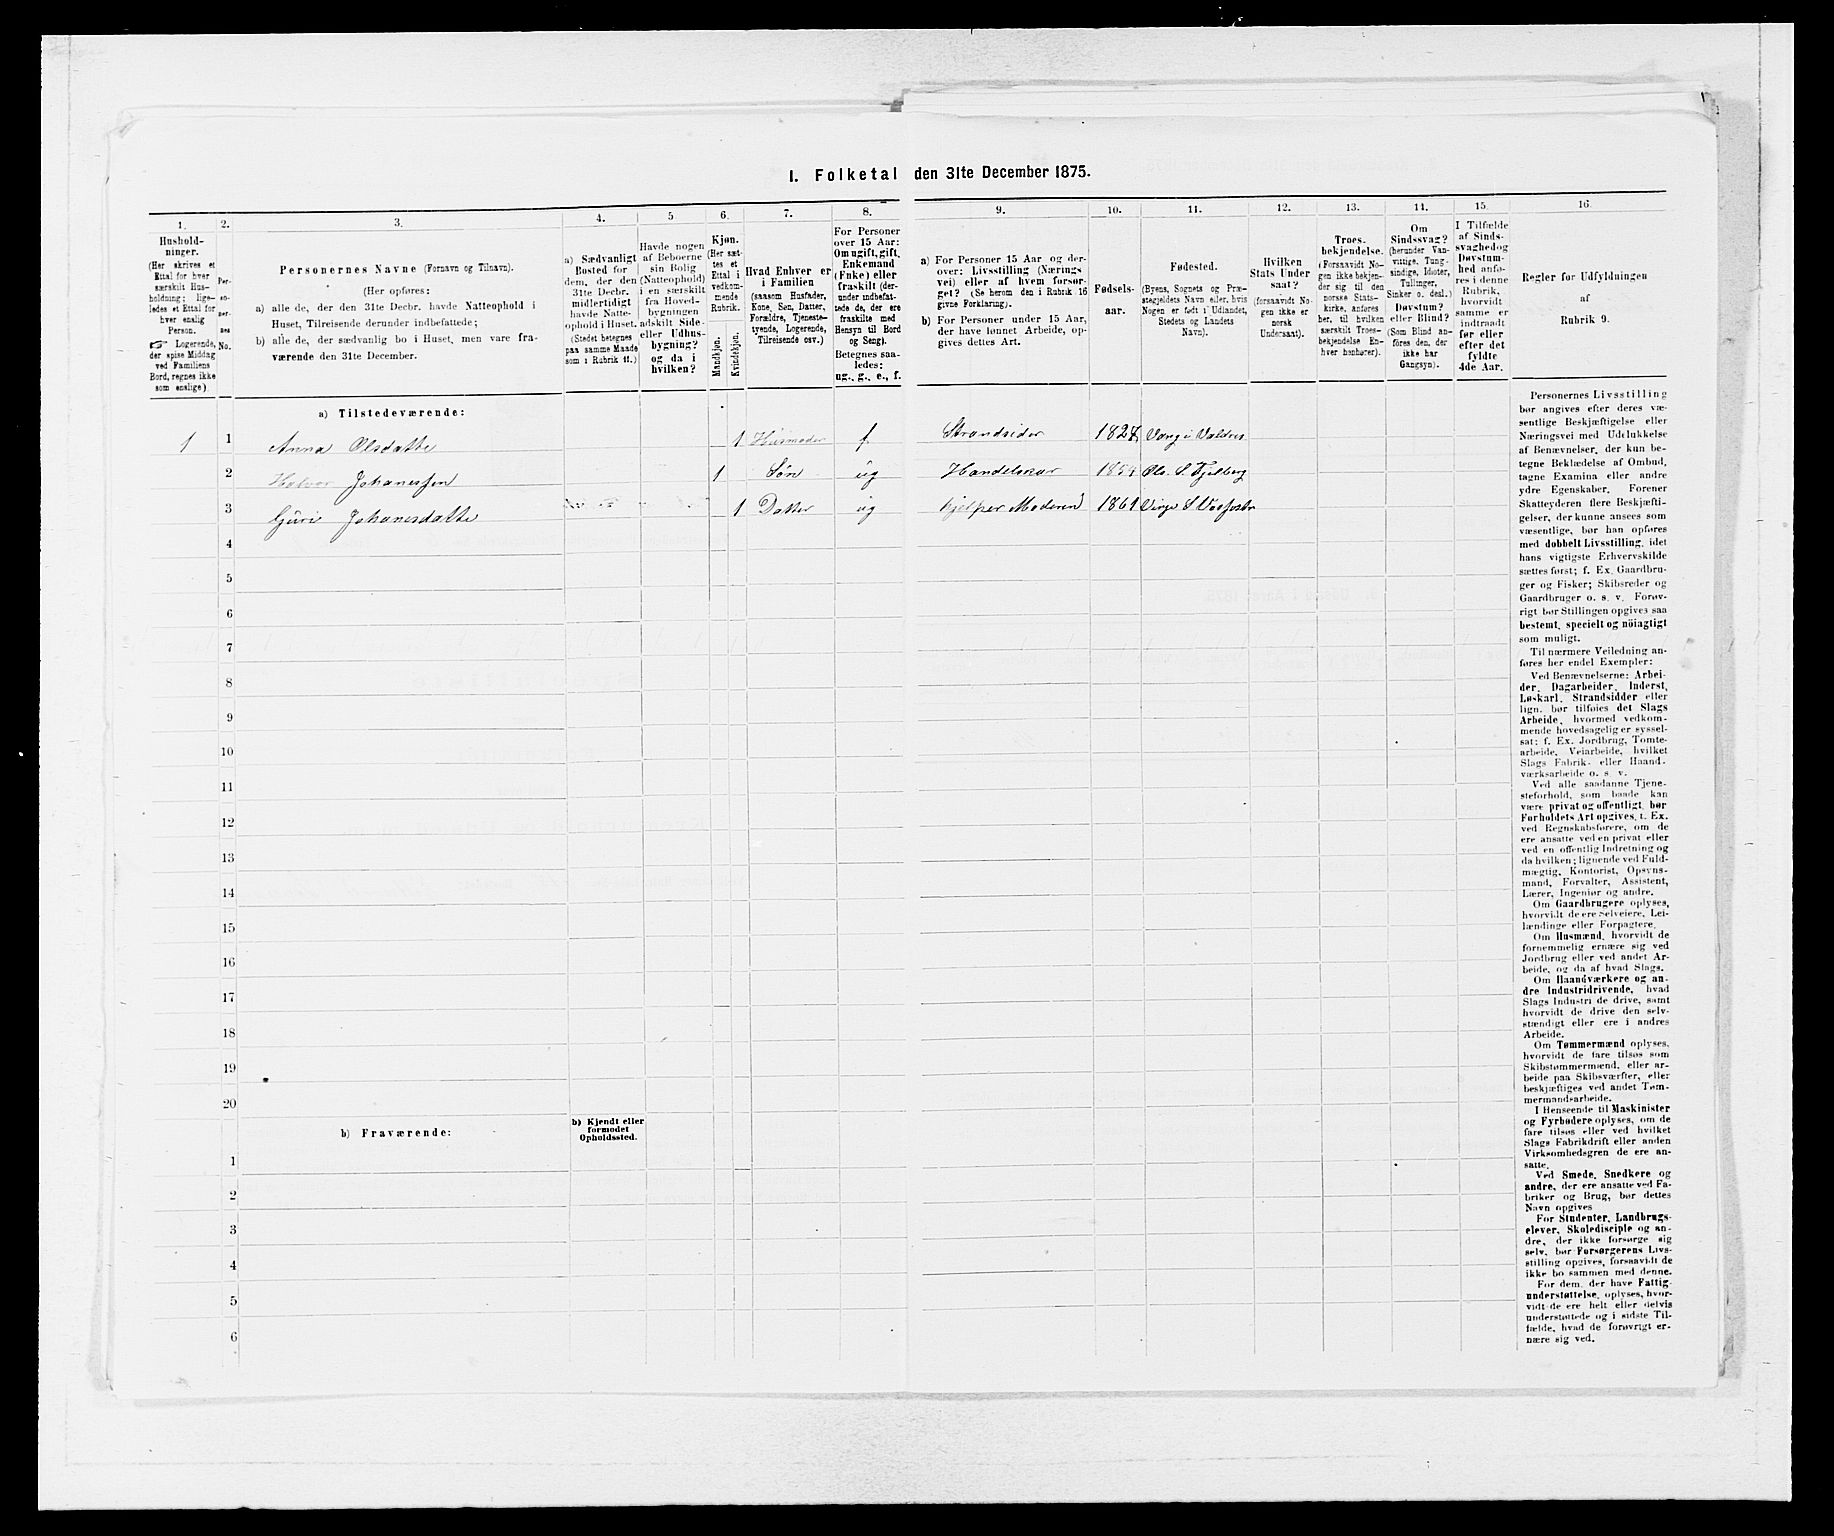 I. Folketal den 31te December 1875.
1.
2.
3.
4.
5
6.
7.
8.
9.
10.
11.
12.
13.
14.
15.
16.
Hushold-
ninger.
(Her skrives et
Ettal for hver
særskilt Hus-
holdning; lige-
ledes et Ettal for
hver enslig
Person.
☞ Logerende,
der spise Middag
ved Familiens
Bord, regnes ikke
som enslige).
Per-
so-
ner-
nes
No.
Personernes Navne (Fornavn og Tilnavn).
(Her opføres:
a) alle de, der den 31te Decbr. havde Natteophold i
Huset, Tilreisende derunder indbefattede;
b) alle de, der sædvanlig bo i Huset, men vare fra-
værende den 31te December.
a) Sædvanligt
Bosted for
dem, der den
31te Decbr.
midlertidigt
havde Natte-
ophold i Huset.
(Stedet betegnes
paa samme Maade
som i Rubrik 11.)
Havde nogen
af Beboerne
sin Bolig
(Natteophold)
i en særskilt
fra Hoved-
bygningen
adskilt Side-
eller Udhus-
bygning?
og da i
hvilken?
Kjøn.
(Her sæt-
tes et
Ettal i
vedkom-
mende
Rubrik.
Mandkjøn.
Kvindekjøn.
Hvad Enhver er
i Familien
(saasom Husfader,
Kone, Søn, Datter,
Forældre, Tjeneste-
tyende, Logerende,
Tilreisende osv.)
For Personer
over 15 Aar:
Om ugift, gift,
Enkemand
(Enke) eller
fraskilt (der-
under indbefat-
tede de, der ere
fraskilte med
Hensyn til Bord
og Seng).
Betegnes saa-
ledes:
ug., g., e., f.
a) For Personer 15 Aar og der-
over: Livsstilling (Nærings
vei) eller af hvem forsør-
get? (Se herom den i Rubrik 16
givne Forklaring).
b) For Personer under 15 Aar,
der have lønnet Arbeide, op-
gives dettes Art.
Fødsels-
aar.
Fødested.
(Byens, Sognets og Præ-
stegjeldets Navn eller, hvis
Nogen er født i Udlandet,
Stedets og Landets
Navn).
Hvilken
Stats Under
saat?
(forsaavidt No-
gen ikke er
norsk
Undersaat).
Troes-
bekjendelse.
(Forsaavidt No-
gen ikke bekjen-
der sig til den
norske Stats-
kirke, anføres
her, til hvilken
særskilt Troes-
bekjendelse En-
hver henhører).
Om
Sindssvag?
(herunder Van-
vittige, Tung-
sindige, Idioter,
Tullinger,
Sinker o. desl.)
Døvstum?
eller Blind?
(Som Blind an-
føres den, der
ikke har
Gangsyn).
I Tilfælde
af Sinds-
svaghed og
Døvstum-
hed anfø-
res i denne
Rubrik,
hvorvidt
samme er
indtraadt
før eller
efter det
fyldte
4de Aar.
Regler for Udfyldningen
af
Rubrik 9.
a) Tilstedeværende:
1 1 Anna Olsdatte 1 Husmoder f. Strandsider Vang i Valdres
2 Halvor Johanessen 1 Søn ug Handelskar
3 Guri Johanesdatte 1 Datter ug hjelper Moderen 1861
4
5
6
7
8
9
10
11
12
13
14
15
16
17
18
19
20
b) Fraværende:
b) Kjendt eller
formodet
Opholdssted.
1
2
3
4
5
6
Personernes Livsstilling
bør angives efter deres væ-
sentlige Beskjæftigelse eller
Næringsvei med Udelukkelse
af Benævnelser, der kun be-
tegne Beklædelse af Ombud,
tagne Examina eller andre
ydre Egenskaber. Forener
Skatteyderen flere Beskjæfti-
gelser, der kunne ansees som
væsentlige, bør han opføres
med dobbelt Livsstilling, idet
hans vigtigste Erhvervskilde
sættes først; f. Ex. Gaardbru-
ger og Fisker; Skibsreder og
Gaardbruger o. s. v. Forøv-
rigt bør Stillingen opgives saa
bestemt, specielt og nöiagtigt
som muligt.
Til nærmere Veiledning an-
føres her endel Exempler:
Ved Benævnelserne: Arbei-
der, Dagarbeider, Inderst,
Løskarl, Strandsidder eller
lign. bør tilføies det Slags
Arbeide, hvormed vedkom-
mende hovedsagelig er syssel-
sat; f. Ex. Jordbrug, Tomte-
arbeide, Veiarbeide, hvilket
Slags Fabrik- eller Haand-
værksarbeide o. s. v.
Ved alle saadanne Tjene-
steforhold, som baade kan
være privat og offentligt, bør
Forholdets Art opgives, t. Ex.
ved Regnskabsførere, om de
ere ansatte ved en privat eller
ved en offentlig Indretning og
da hvilken; lignende ved Fuld-
mægtig, Kontorist, Opsyns-
mand, Forvalter, Assistent,
Lærer, Ingeniør og andre.
Om Gaardbrugere oplyses,
hvorvidt de ere selveiere, Lei-
lændinge eller Forpagtere.
Om Husmænd, hvorvidt de
fornemmelig ernære sig ved
Jordbrug eller ved andet Ar-
beide, og da af hvad Slags.
Om Haandværkere og an-
dre Industridrivende, hvad
Slags Industri de drive, samt
hvorvidt de drive den selv-
stændigt eller ere i andres
Arbeide.
Om Tømmermænd oplyses,
hvorvidt de fare tilsøs som
Skibstømmermænd, eller ar-
beide paa Skibsværfter, eller
beskjæftiges ved andet Tøm-
mermandsarbeide.
I Henseende til Maskinister
og Fyrbødere oplyses, om de
fare tilsøs eller ved hvilket
Slags Fabrikdrift eller anden
Virksomhedsgren de ere an-
satte.
Ved Smede, Snedkere og
andre, der ere ansatte ved Fa-
briker og Brug, bør dettes
Navn opgives
For Studenter, Landbrugs-
elever, Skoledisciple og an-
dre, der ikke forsørge sig
selv, bør Forsørgerens Livs-
stilling opgives, forsaavidt de
ikke bo sammen med denne.
For dem, der have Fattig-
understøttelse, oplyses, hvor-
vidt de ere helt eller delvis
understøttede og i sidste Til-
fælde, hvad de forøvrigt er-
nære sig ved.